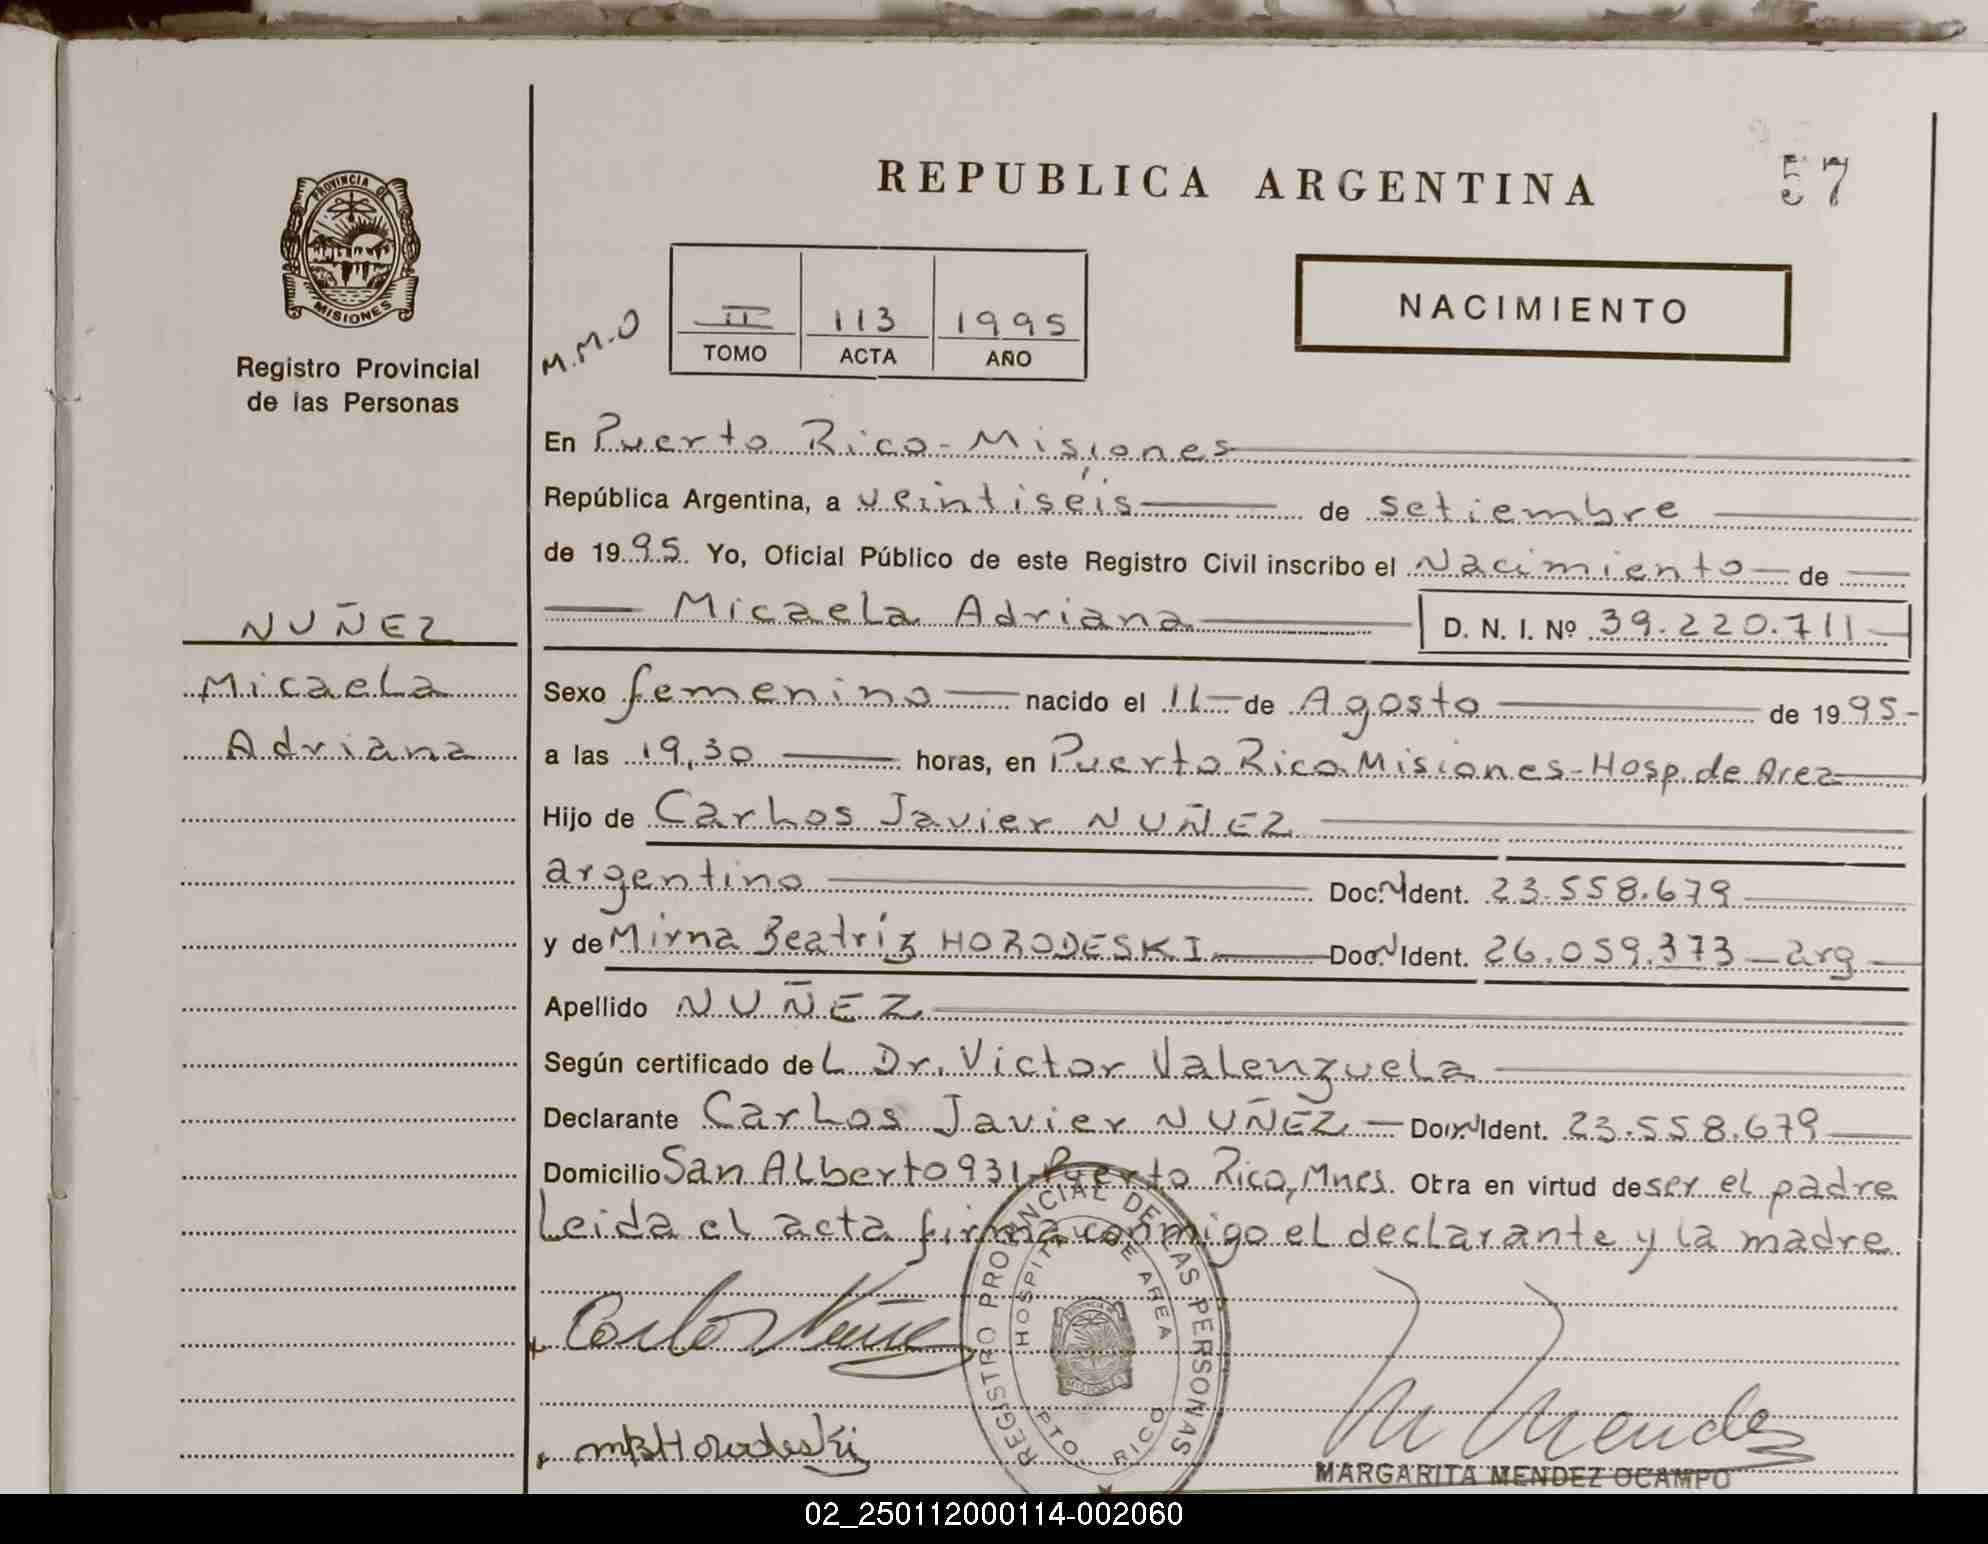 REPUBLICA ARGENTINA
57
PROVINCIA DE
MISIONES
Registro Provincial
de las Personas
M.M.O
II 113 1995
TOMO ACTA AÑO
NACIMIENTO
En Puerto Rico - Misiones
República Argentina, a veintiséis de setiembre
de 1995. Yo, Oficial Público de este Registro Civil inscribo el Nacimiento de
Micaela Adriana D. N. I. Nº 39.220.711
NUÑEZ
Micaela
Adriana
Sexo femenino nacido el 11 de Agosto de 1995-
a las 19,30 horas, en Puerto Rico Misiones - Hosp. de Area
Hijo de Carlos Javier NUÑEZ
argentino Doc. N Ident. 23.558.679
y de Mirna Beatriz HORODESKI Doc. N Ident. 26.059.373 - arg
Apellido NUÑEZ
Según certificado del Dr. Victor Valenzuela
Declarante Carlos Javier NUÑEZ - Doc. N Ident. 23.558.679
Domicilio San Alberto 931 - Puerto Rico, Mnes. Obra en virtud de ser el padre
Leida el acta firma conmigo el declarante y la madre
Carlos Nuñez
MBHorodeski
REGISTRO PROVINCIAL DE LAS PERSONAS
HOSPITAL DE AREA
PTO. RICO
PROVINCIA DE
MISIONES
M Mendez
MARGARITA MENDEZ OCAMPO
02_250112000114-002060